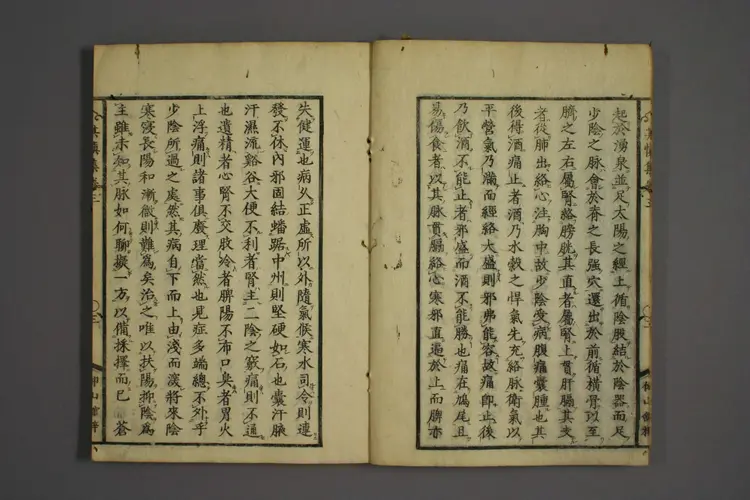 起於湧泉並足太陽之經上循陰股結於陰器而足
少陰之脉會於脊之長强穴還出於前循橫骨以至
臍之左右屬腎絡膀胱其直者屬腎上貫肝膈其支
者從肺出絡心注胸中故少陰受病腹痛囊腫也其
後得酒痛止者酒乃水穀之悍氣先充絡脉衛氣以
平營氣乃滿而經絡大盛則邪弗能容故痛即止後
乃飲酒不能止者邪盛而酒不能勝也痛在鳩尾且
易傷食者以其脉貫膈絡心寒邪直逼於上而脾亦
失健運也病久正虛所以外隨氣候寒水司令則連
發不休內邪固結蟠踞中州則堅硬如石也囊汗腋
汗濕流谿谷大便不利者腎主二陰之竅痛則不通
也遺精者心腎不交肢冷者脾陽不布口臭者胃火
上浮痛則諸事俱廢理當然也見症多端總不外乎
少陰所過之處然其病自下而上由淺而深將來陰
寒寖長陽和漸微則難爲矣治之唯以扶陽抑陰爲
主雖未知其脉如何聊擬一方以備採擇而已 蒼